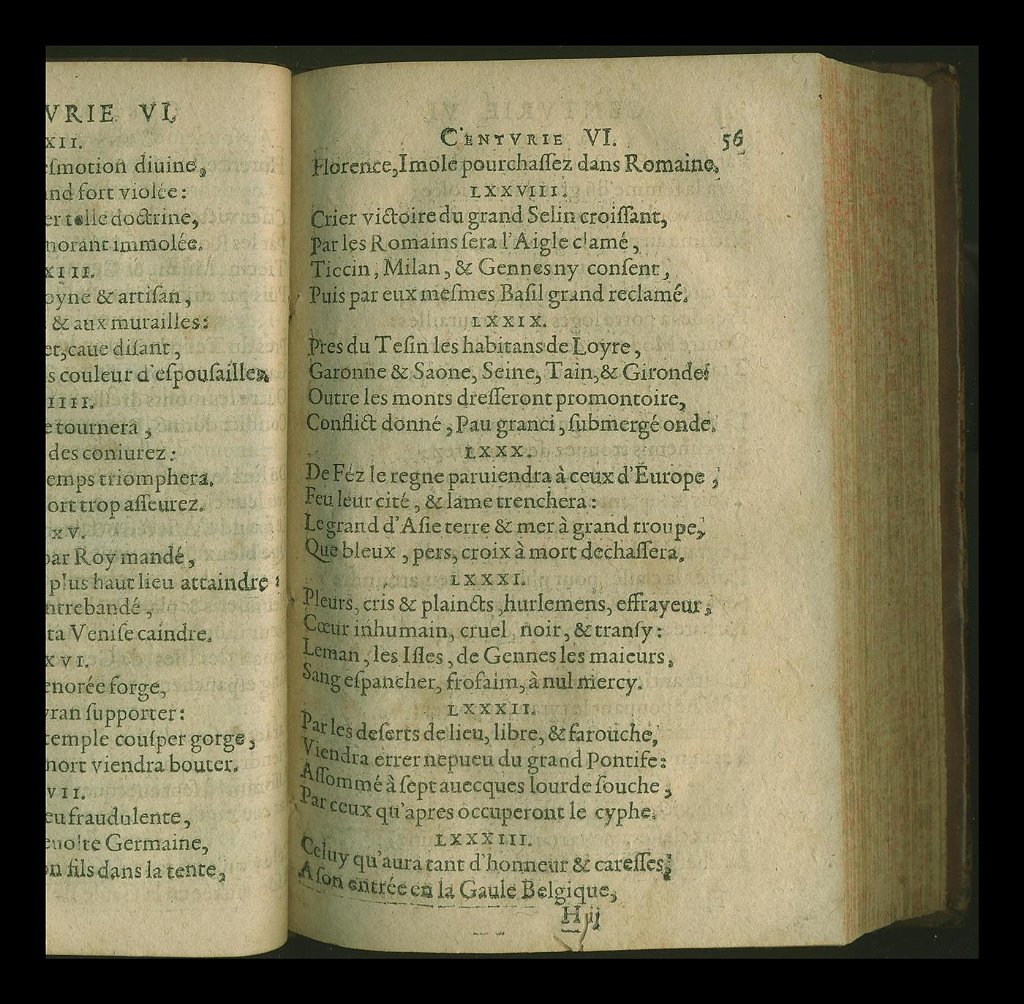 VRIE VI.
XII.
eſmotion diuine,
nd fort violée:
er telle doctrine,
norant immolée.
XIII.
oyne & artiſan,
& aux murailles:
et, caue diſant,
s couleur d'eſpouſailles,
IIII.
e tournera,
des coniurez:
emps triomphera,
ort trop aſſeurez.
XV.
par Roy mandé,
plus haut lieu attaindre:
ntrebandé,
ta Veniſe caindre.
XVI.
enorée forge,
vran ſupporter:
temple couſper gorge,
mort viendra bouter.
VII.
eu fraudulente,
euolte Germaine,
n fils dans la tente,
CENTVRIE VI. 56
Florence, Imole pourchaſſez dans Romaine.
LXXVIII.
Crier victoire du grand Selin croiſſant,
Par les Romains ſera l'Aigle clamé,
Ticcin, Milan, & Gennes ny conſent,
Puis par eux meſmes Baſil grand reclamé.
LXXIX.
Pres du Teſin les habitans de Loyre,
Garonne & Saone, Seine, Tain, & Gironde:
Outre les monts dreſſeront promontoire,
Conflict donné, Pau granci, ſubmergé onde.
LXXX.
De Féz le regne paruiendra à ceux d'Europe,
Feu leur cité, & lame trenchera:
Le grand d'Aſie terre & mer à grand troupe,
Que bleux, pers, croix à mort dechaſſera.
LXXXI.
Pleurs, cris & plaincts, hurlemens, effrayeur,
Cœur inhumain, cruel, noir, & tranſy:
Leman, les Iſles, de Gennes les maieurs,
Sang eſpancher, froſaim, à nul mercy.
LXXXII.
Par les deſerts de lieu, libre, & farouche,
Viendra errer nepueu du grand Pontife:
Aſſommé à ſept auecques lourde ſouche,
Par ceux qu'apres occuperont le cyphe.
LXXXIII.
Celuy qu'aura tant d'honneur & careſſes,
A ſon entrée en la Gaule Belgique,
H ij